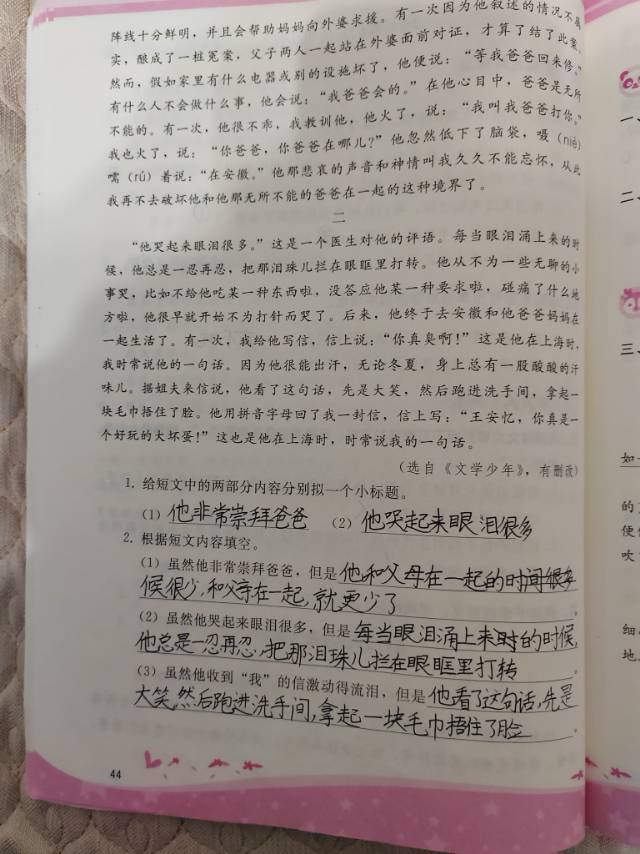 阵线十分鲜明，并且会帮助妈妈向外婆求援。有一次因为他叙述的情况不属
实，酿成了一桩冤案，父子两人一起站在外婆面前对证，才算了结了此案。
然而，假如家里有什么电器或别的设施坏了，他便说：“等我爸爸回来修。”
有什么人不会做什么事，他会说：“我爸爸会的。”在他心目中，爸爸是无所
不能的。有一次，他很不乖，我教训他，他火了，说：“我叫我爸爸打你。”
我也火了，说：“你爸爸，你爸爸在哪儿？”他忽然低下了脑袋，嗫（niè）
嚅（rú）着说：“在安徽。”他那悲哀的声音和神情叫我久久不能忘怀，从此
我再不去破坏他和他那无所不能的爸爸在一起的这种境界了。
二
“他哭起来眼泪很多。”这是一个医生对他的评语。每当眼泪涌上来的时
候，他总是一忍再忍，把那泪珠儿拦在眼眶里打转。他从不为一些无聊的小
事哭，比如不给他吃某一种东西啦，没答应他某一种要求啦，碰痛了什么地
方啦，他很早就开始不为打针而哭了。后来，他终于去安徽和他爸爸妈妈在
一起生活了。有一次，我给他写信，信上说：“你真臭啊！”这是他在上海时，
我时常说他的一句话。因为他很能出汗，无论冬夏，身上总有一股酸酸的汗
味儿。据姐夫来信说，他看了这句话，先是大笑，然后跑进洗手间，拿起一
块毛巾捂住了脸。他用拼音字母回了我一封信，信上写：“王安忆，你真是一
个好玩的大坏蛋！”这也是他在上海时，时常说我的一句话。
（选自《文学少年》，有删改）
1. 给短文中的两部分内容分别拟一个小标题。
（1）他非常崇拜爸爸 （2）他哭起来眼泪很多
2. 根据短文内容填空。
（1）虽然他非常崇拜爸爸，但是他和父母在一起的时间很多
候很少，和父亲在一起，就更少了。
（2）虽然他哭起来眼泪很多，但是每当眼泪涌上来时的时候，
他总是一忍再忍，把那泪珠儿拦在眼眶里打转。
（3）虽然他收到“我”的信激动得流泪，但是他看了这句话，先是
大笑，然后跑进洗手间，拿起一块毛巾捂住了脸。
44
一、
二、
三、
如
的
使
吹
细
地